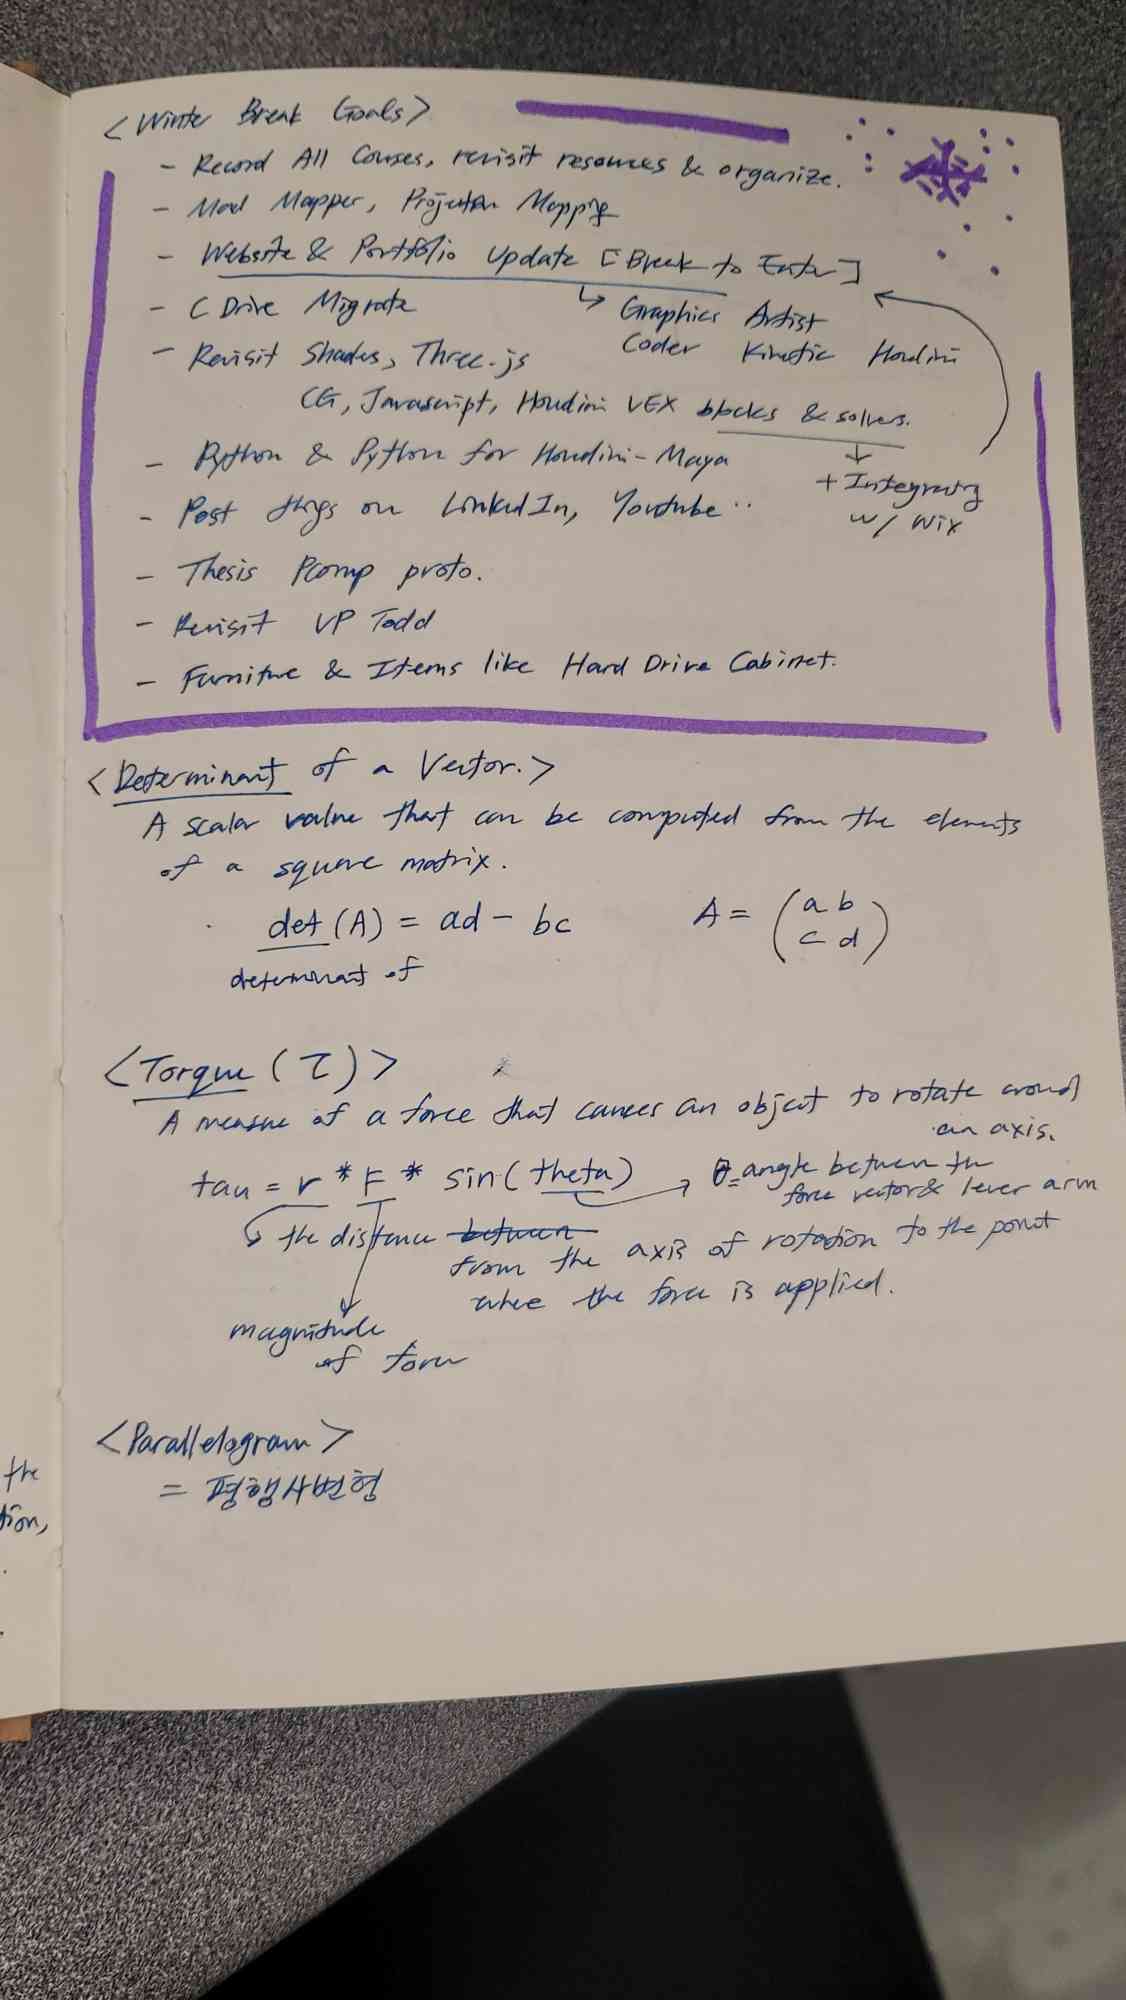 <Winter Break Goals>
- Record All Courses, revisit resources & organize.
- Mad Mapper, Projection Mapping
- Website & Portfolio Update [Break to Enter]
↳ Graphics Artist
Coder Kinetic Houdini
- C Drive Migrate
- Revisit Shades, Three.js
CG, Javascript, Houdini VEX blocks & solvers.
↓
+ Integrating
w/ Wix
- Python & Python for Houdini-Maya
- Post things on LinkedIn, Youtube..
- Thesis Pcomp proto.
- Revisit VP Todd
- Furniture & Items like Hard Drive Cabinet.
<Determinant of a Vector.>
A scalar value that can be computed from the elements
of a square matrix.
det (A) = ad - bc
A = (a b
c d)
determinant of
<Torque (τ)>
A measure of a force that causes an object to rotate around
an axis.
tau = r * F * sin(theta) → θ= angle between the
force vector & lever arm
↳ the distance between
from the axis of rotation to the point
where the force is applied.
magnitude
of force
<Parallelogram>
= 평행사변형
the
tion,